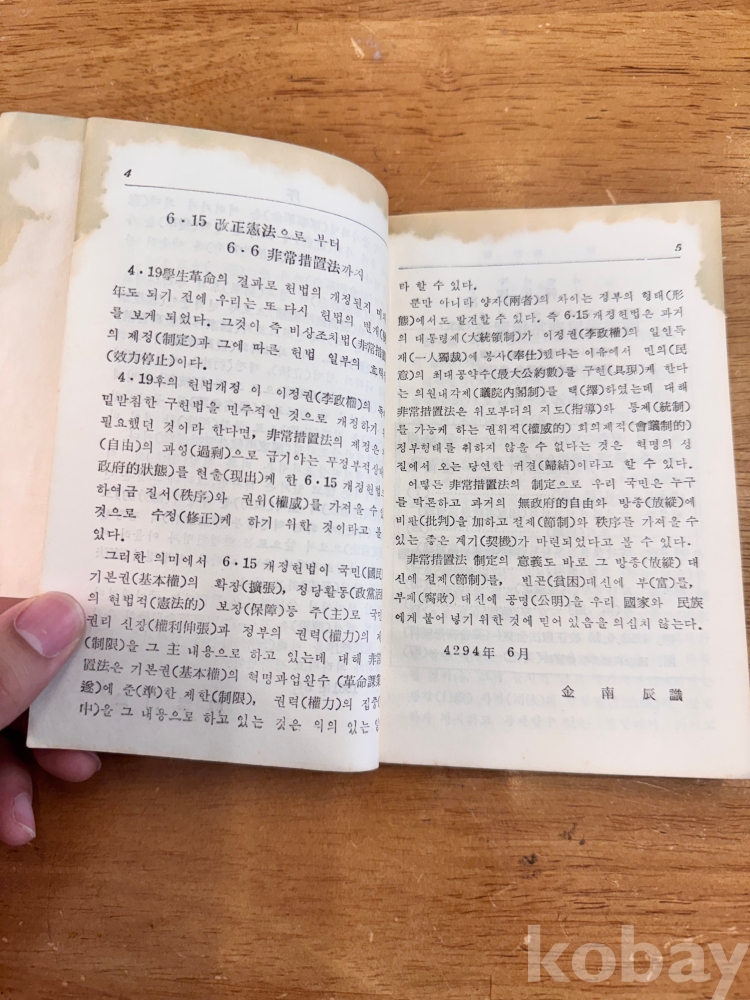 4
6·15 改正憲法으로 부터
6·6 非常措置法까지
4·19學生革命의 결과로 헌법의 개정된지
年도 되기 전에 우리는 또 다시 헌법의
를 보게 되었다. 그것이 즉 비상조치법(非常措置
의 제정(制定)과 그에 따른 헌법 일부의 효력
(效力停止)이다.
4·19후의 헌법개정 이 이정권(李政權)의
밑받침한 구헌법을 민주적인 것으로 개정하기
필요했던 것이라 한다면, 非常措置法의 제정은
(自由)의 과잉(過剩)으로 급기야는 무정부적상
政府的狀態)를 현출(現出)케 한 6·15 개정헌법
하여금 질서(秩序)와 권위(權威)를 가져올 수
것으로 수정(修正)케 하기 위한 것이라고
있다.
그러한 의미에서 6·15 개정헌법이 국민(國民
기본권(基本權)의 확장(擴張), 정당활동(政黨活
의 헌법적(憲法的) 보장(保障)등 주(主)로 국민
권리 신장(權利伸張)과 정부의 권력(權力)의
(制限)을 그 主 내용으로 하고 있는데 대해 非常
置法은 기본권(基本權)의 혁명과업완수(革命課業
遂)에 준(準)한 제한(制限), 권력(權力)의 집중
中)을 그 내용으로 하고 있는 것은 의의 있는
5
라 할 수 있다.
뿐만 아니라 양자(兩者)의 차이는 정부의 형태(形
態)에서도 발견할 수 있다. 즉 6·15 개정헌법은 과거
의 대통령제(大統領制)가 이정권(李政權)의 일인독
재(一人獨裁)에 봉사(奉仕)했다는 이유에서 민의(民
意)의 최대공약수(最大公約數)를 구현(具現)케 한다
는 의원내각제(議院內閣制)를 택(擇)하였는데 대해
非常措置法은 위로부터의 지도(指導)와 통제(統制)
를 가능케 하는 권위적(權威的) 회의제적(會議制的)
정부형태를 취하지 않을 수 없다는 것은 혁명의 성
질에서 오는 당연한 귀결(歸結)이라고 할 수 있다.
어떻든 非常措置法의 制定으로 우리 국민은 누구
를 막론하고 과거의 無政府的自由와 방종(放縱)에
비판(批判)을 加하고 절제(節制)와 秩序를 가져올 수
있는 좋은 계기(契機)가 마련되었다고 볼 수 있다.
非常措置法 制定의 意義도 바로 그 방종(放縱) 대
신에 절제(節制)를, 빈곤(貧困)대신에 부(富)를,
부패(腐敗) 대신에 공명(公明)을 우리 國家와 民族
에게 불어 넣기 위한 것에 믿어 있음을 의심치 않는다.
4294年 6月
金南辰 識
kobay